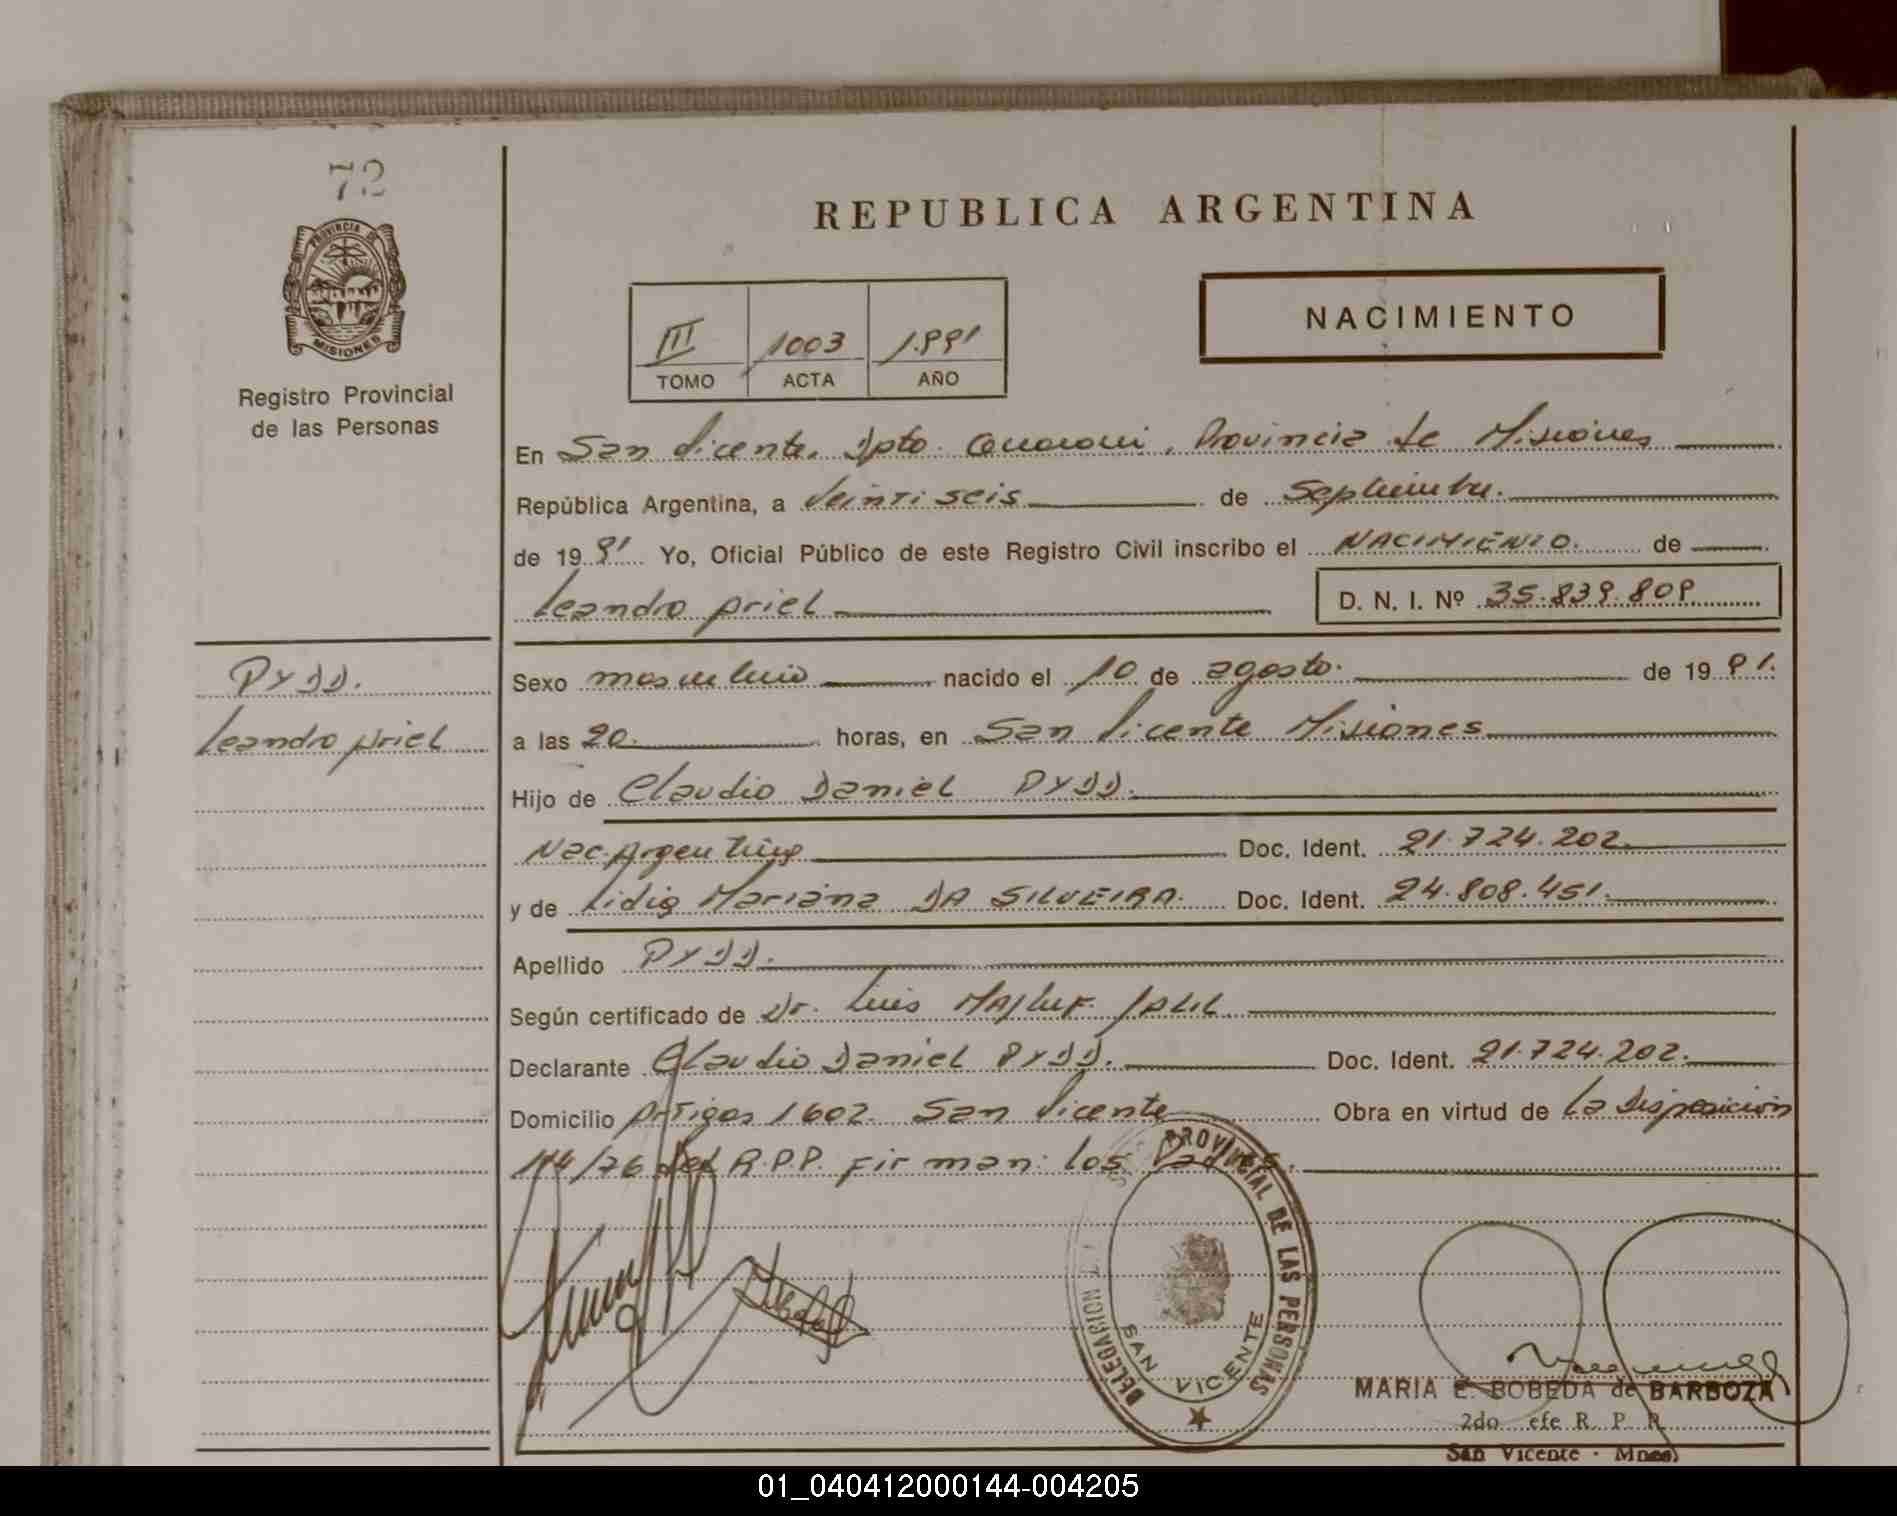 72
PROVINCIA DE
MISIONES
Registro Provincial
de las Personas
REPUBLICA ARGENTINA
III 1003 1.991
TOMO ACTA AÑO
NACIMIENTO
En San Vicente, Dpto. Guaraní, Provincia de Misiones
República Argentina, a Veintiseis de Septiembre.
de 19 91 Yo, Oficial Público de este Registro Civil inscribo el NACIMIENTO. de
Leandro Ariel
D. N. I. Nº 35.839.809
PYDD.
Leandro Ariel
Sexo masculino nacido el 10 de agosto. de 19 91.
a las 20. horas, en San Vicente Misiones
Hijo de Claudio Daniel PYDD.
Nac. Argentino Doc. Ident. 21.724.202.
y de Lidia Mariana DA SILVEIRA. Doc. Ident. 24.808.451.
Apellido PYDD.
Según certificado de Dr. Luis MAJLUF JALIL.
Declarante Claudio Daniel PYDD. Doc. Ident. 21.724.202.
Domicilio Artigas 1602. San Vicente Obra en virtud de la Disposición
/76 del R.P.P. Firman: los Padres.
DELEGACION PROVINCIAL DE LAS PERSONAS
SAN VICENTE
MARIA E. BOBEDA de BARBOZA
2do efe R. P. P.
San Vicente - Mnes)
01_040412000144-004205